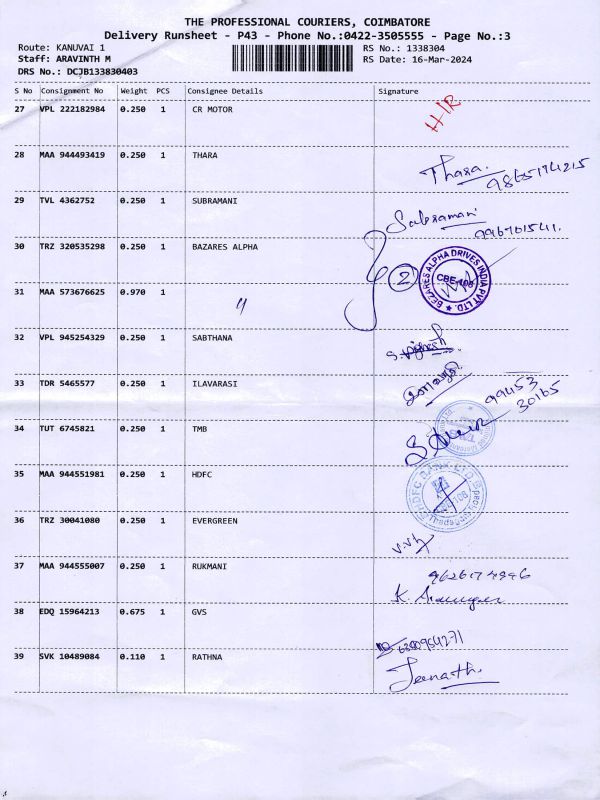 THE PROFESSIONAL COURIERS, COIMBATORE
Delivery Runsheet - P43 - Phone No.:0422-3505555 - Page No.:3
Route: KANUVAI 1
Staff: ARAVINTH M
DRS No.: DCJB133830403
RS No.: 1338304
RS Date: 16-Mar-2024
S No Consignment No Weight PCS Consignee Details Signature
27 VPL 222182984 0.250 1 CR MOTOR
28 MAA 944493419 0.250 1 THARA Thara.
29 TVL 4362752 0.250 1 SUBRAMANI Subramani
30 TRZ 320535298 0.250 1 BAZARES ALPHA 2
BEZARES ALPHA DRIVES INDIA PVT LTD.
31 MAA 573676625 0.970 1 "
32 VPL 945254329 0.250 1 SABTHANA
33 TDR 5465577 0.250 1 ILAVARASI
99453
30165
34 TUT 6745821 0.250 1 TMB
35 MAA 944551981 0.250 1 HDFC
HDFC BANK LTD
36 TRZ 30041080 0.250 1 EVERGREEN
37 MAA 944555007 0.250 1 RUKMANI
38 EDQ 15964213 0.675 1 GVS
39 SVK 10489084 0.110 1 RATHNA